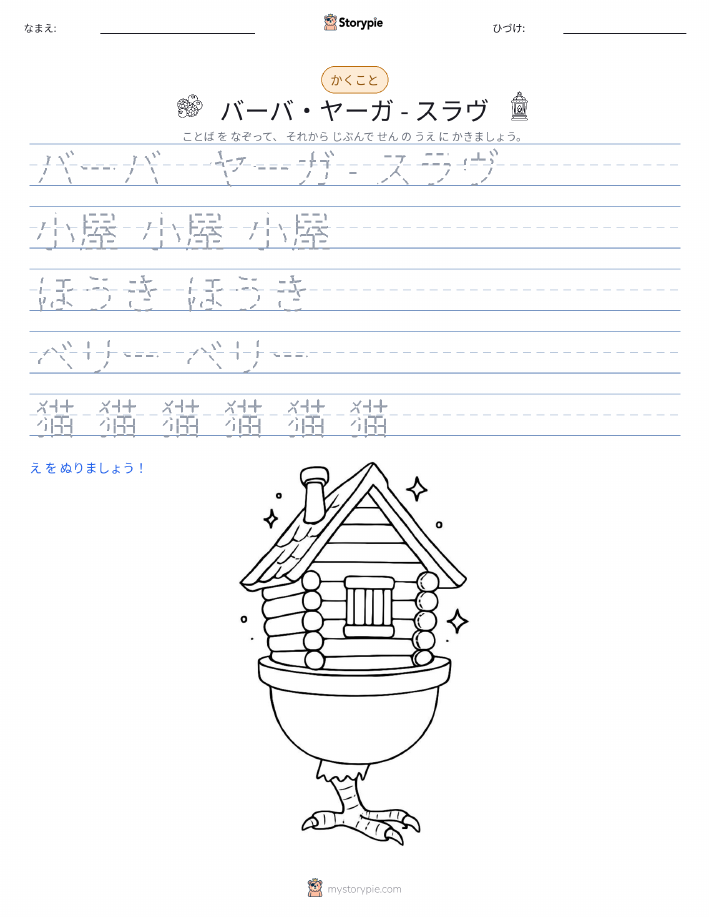 なまえ:
Storypie
ひづけ:
かくこと
バーバ・ヤーガ - スラヴ
ことば を なぞって、 それから じぶんで せん の うえ に かきましょう。
バーバ ヤーガ - スラヴ
小屋 小屋 小屋
ほうき ほうき
ベリー ベリー
猫 猫 猫 猫 猫 猫
え を ぬりましょう！
mystorypie.com